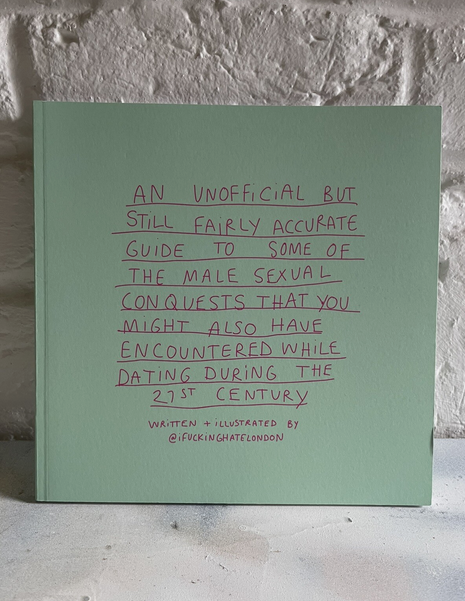 AN UNOFFiCiAL BUT
STiLL FAiRLY ACCURATE
GUIDE TO SOME OF
THE MALE SEXUAL
CONQUESTS THAT YOU
MIGHT ALSO HAVE
ENCOUNTERED WHILE
DATiNG DURiNG THE
21ST CENTURY
WRiTTEN + iLLUSTRATED BY
@iFUCKiNGHATELONDON